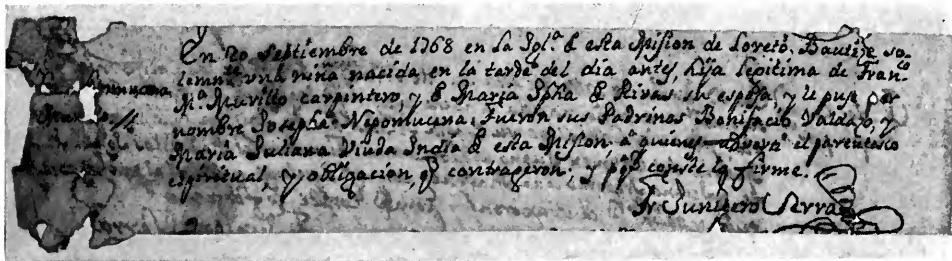 En 20 Septiembre de 1768 en la Igl.ª d esta Mision de Loreto. Bautize so-
lemn.te vna niña nacida en la tarde del dia antes hija legitima de Fran.co
M.ª Murillo carpintero, y d Maria Ipha d Rivas su esposa, y le puse por
nombre Josepha Nepomucena. Fueron sus Padrinos Bonifacio Valdezo, y
Maria Juliana Viuda India d esta Mision, a quienes el parentesco
espiritual, y obligacion, q contrageron; y p.q conste lo firme.
Fr Junipero Serra